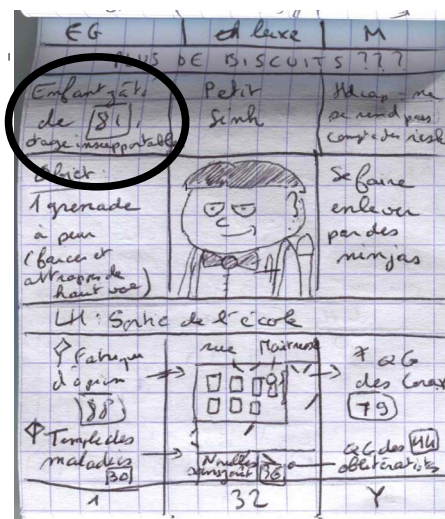 EG | de luxe | M
PLUS DE BISCUITS ???
Enfant gâté
de 81,
otage insupportable
Petit
Sinh
Hdicap : ne
se rend pas
compte des risk
Objet :
1 grenade
à peur
(farces et
attrapes de
haut vol)
Se faire
enlever
par des
ninjas
LH : Sortie de l'école
Fabrique
d'opium
88
Temple des
maladies
30
rue
* QG
des Corax
79
36
QG des 44
oblitératistes
1
32
Y